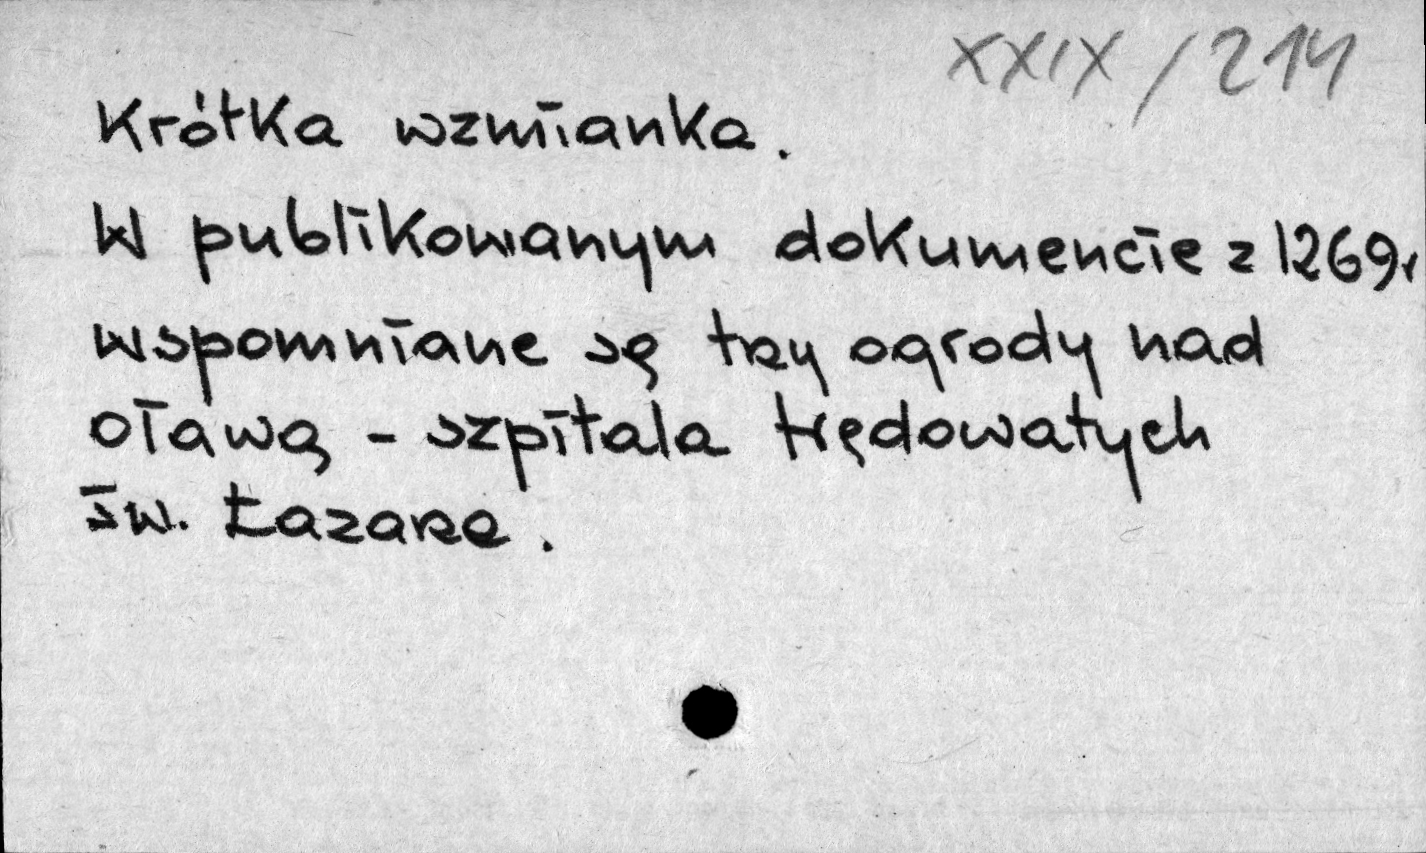 XXIX/214
Krótka wzmianka.
W publikowanym dokumencie z 1269r
wspomniane są trzy ogrody nad
oławą - szpitala trędowatych
św. Łazarza.